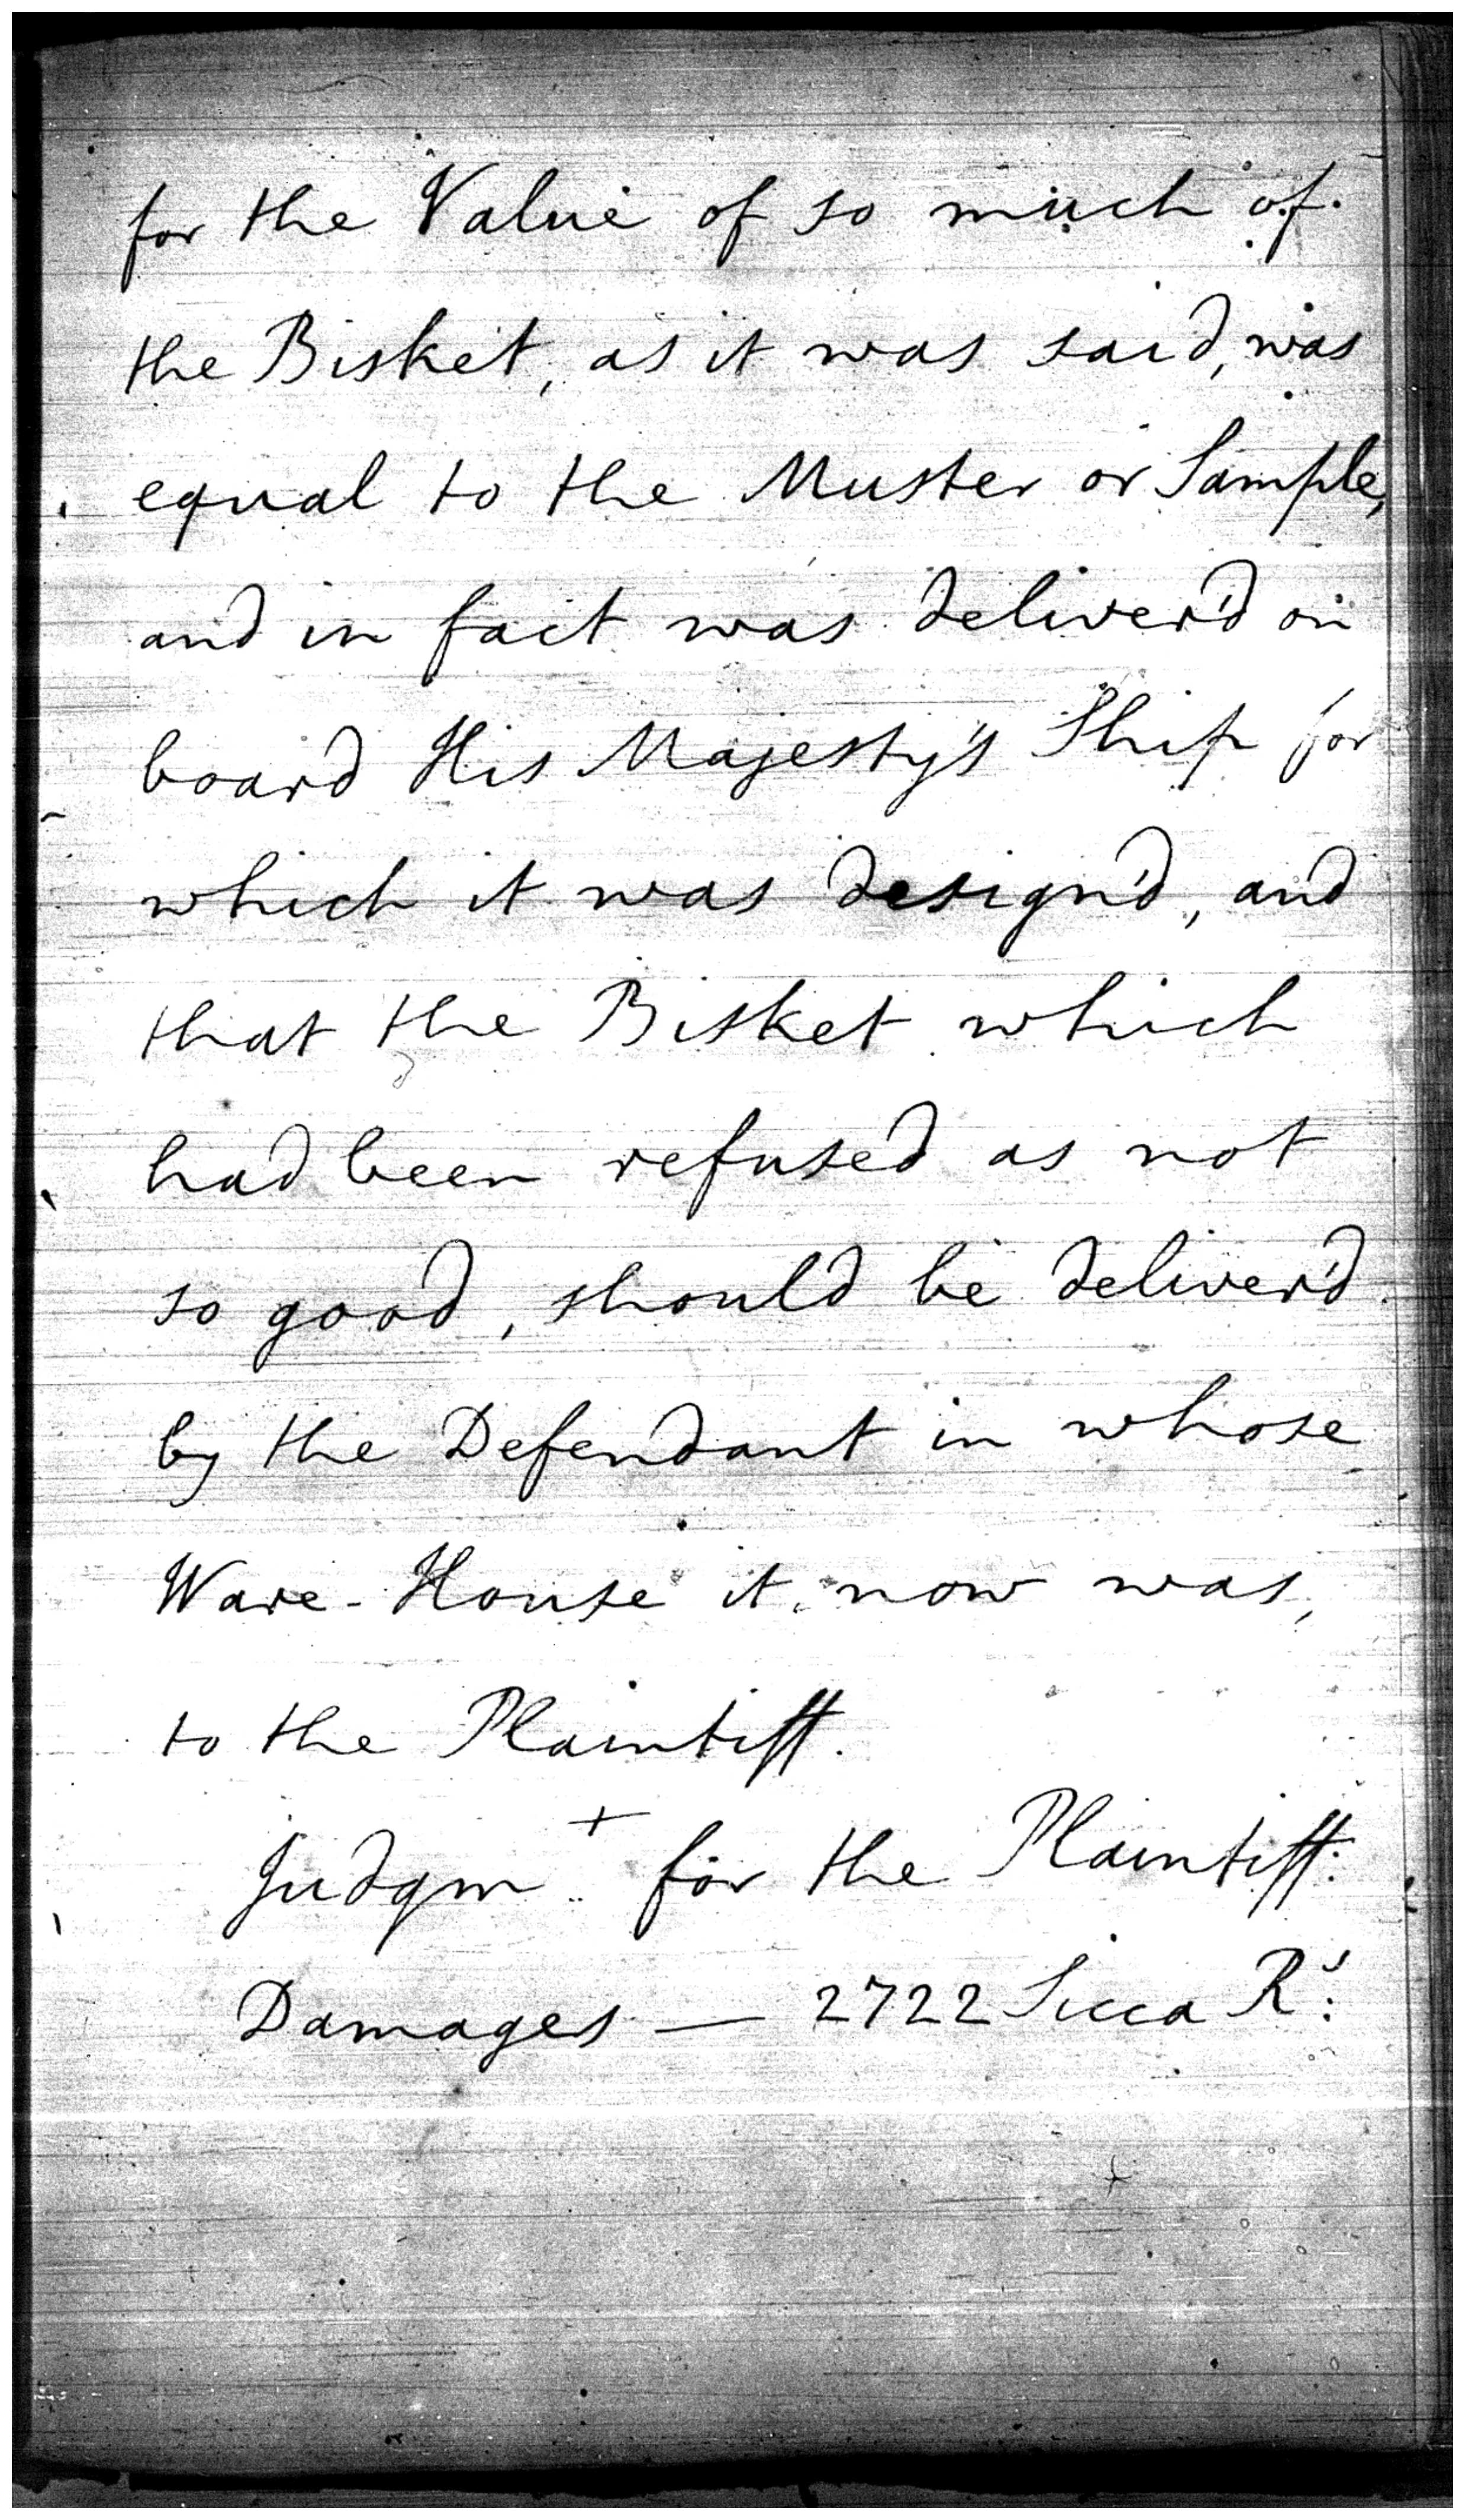 for the Value of so much of
the Bisket, as it was said, was
equal to the Muster or Sample,
and in fact was deliver'd on
board His Majesty's Ship for
which it was design'd, and
that the Bisket which
had been refused as not
so good, should be deliver'd
by the Defendant in whose
Ware-House it now was,
to the Plaintiff.
Judgmt for the Plaintiff:
Damages — 2722 Sicca Rs: